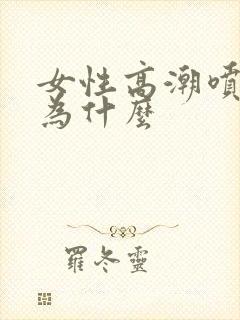 女性高潮噴
為什麼
羅冬靈